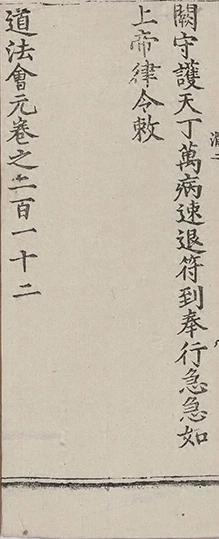 闕守護天丁萬病速退符到奉行急急如
上帝律令敕
道法會元卷之二百一十二